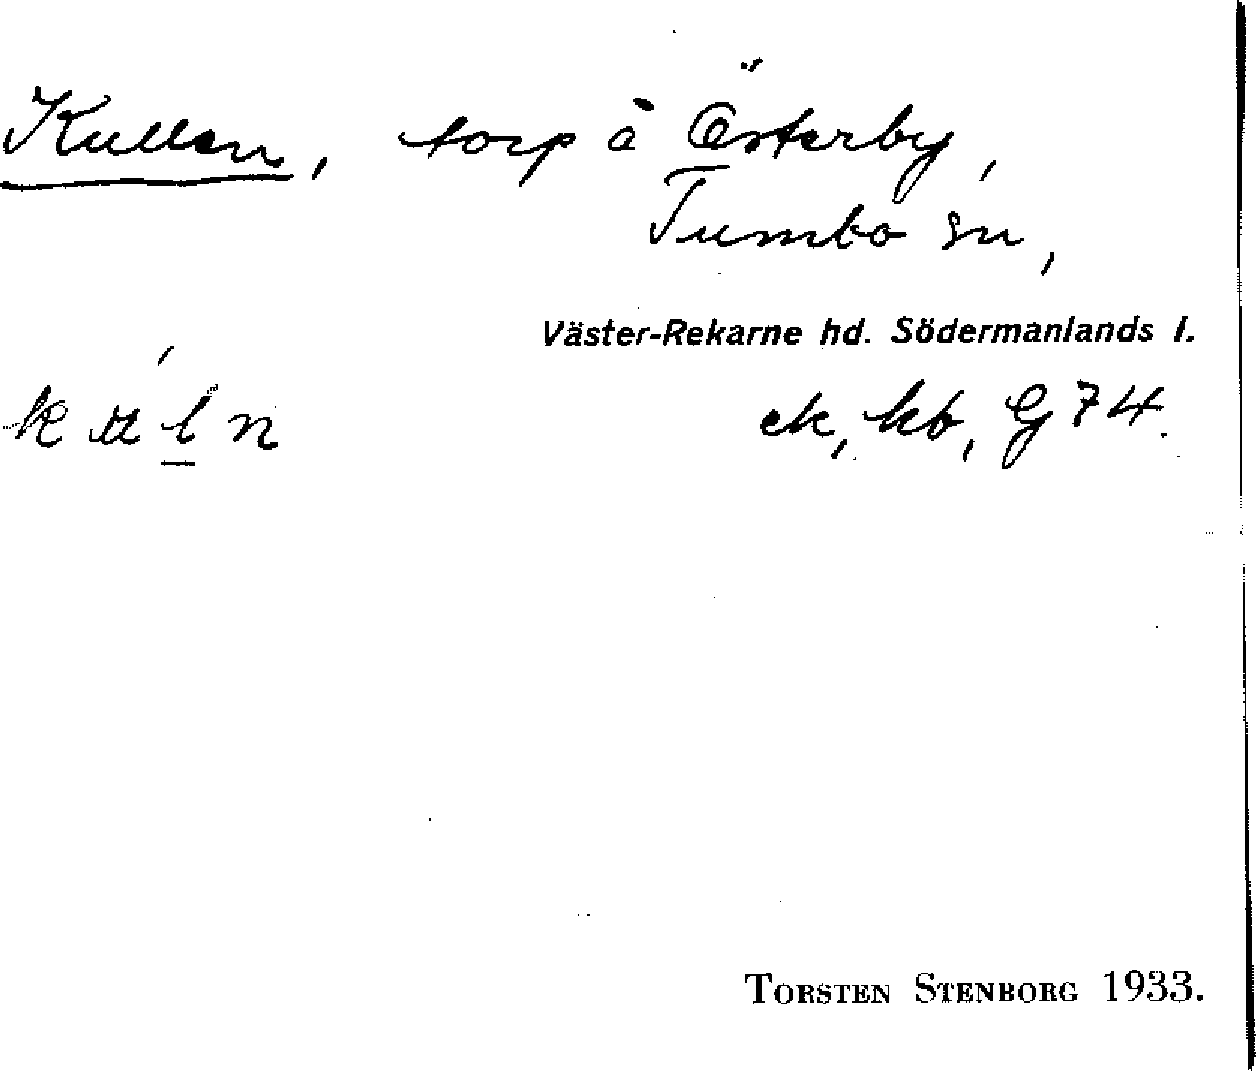 Kullen, torp å Österby,
Tumbo sn,
Väster-Rekarne hd. Södermanlands l.
ek, kb, G 74.
TORSTEN STENBORG 1933.